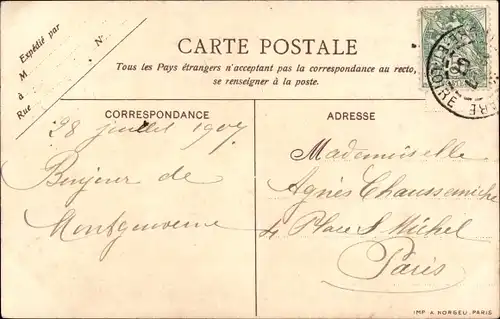 Expédié par
M
à
Rue
N°
CARTE POSTALE
Tous les Pays étrangers n'acceptent pas la correspondance au recto,
se renseigner à la poste.
CORRESPONDANCE
28 juillet 1907
Bonjour de
Montgouverne
ADRESSE
Mademoiselle
Agnès
4 Place St Michel
Paris
IMP A. NORGEU, PARIS